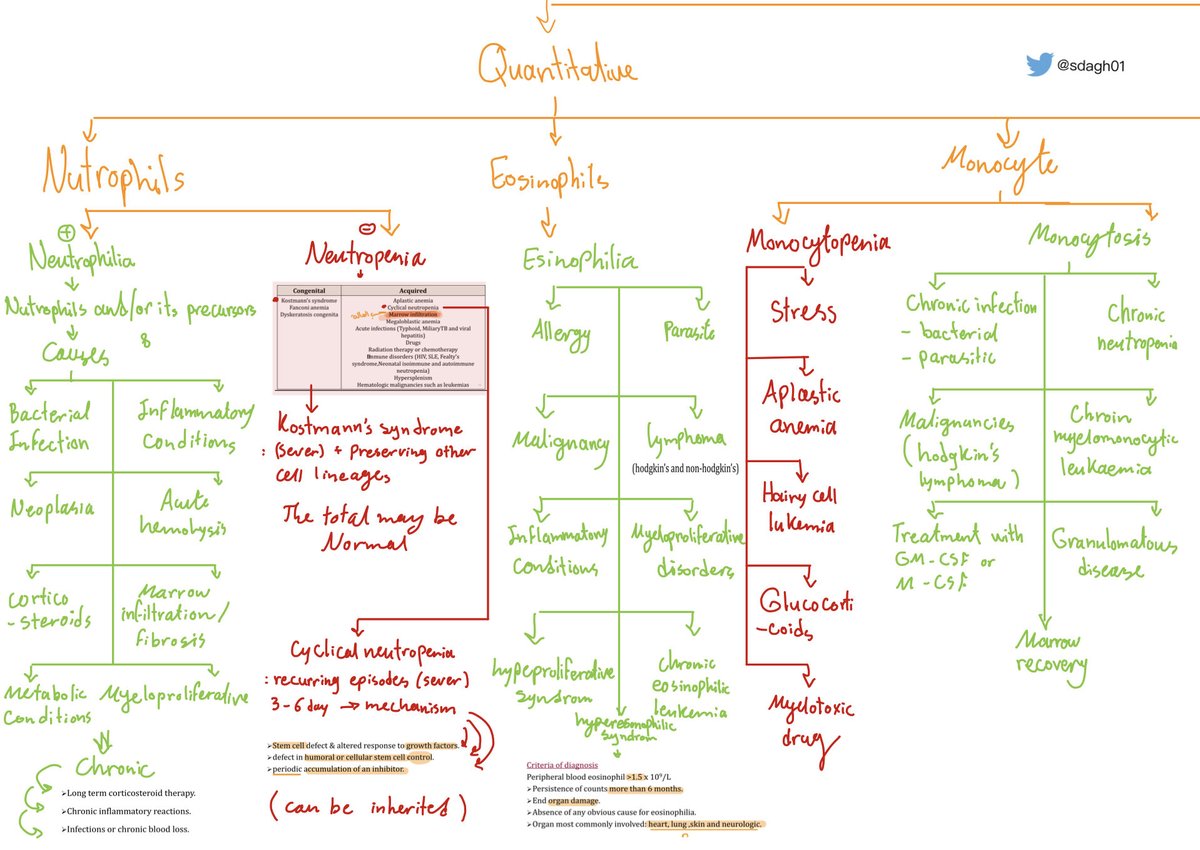 Quantitative
@sdagh01
Nutrophils
Eosinophils
Monocyte
+
Neutrophilia
Nutrophils and/or its precursors
Causes 8
Bacterial
Infection
Inflammatory
Conditions
Neoplasia
Acute
hemolysis
Cortico
-steroids
Marrow
infiltration/
fibrosis
Metabolic
Conditions
Myeloproliferative
Chronic
➤Long term corticosteroid therapy.
➤Chronic inflammatory reactions.
➤Infections or chronic blood loss.
-
Neutropenia
Congenital
Acquired
Kostmann's syndrome
Fanconi anemia
Dyskeratosis congenita
Aplastic anemia
Cyclical neutropenia
Marrow infiltration
Megaloblastic anemia
Acute infections (Typhoid, MiliaryTB and viral
hepatitis)
Drugs
Radiation therapy or chemotherapy
Immune disorders (HIV, SLE, Fealty's
syndrome,Neonatal isoimmune and autoimmune
neutropenia)
Hypersplenism
Hematologic malignancies such as leukemias
Kostmann's syndrome
: (Sever) + Preserving other
cell lineages
The total may be
Normal
Cyclical neutropenia
: recurring episodes (sever)
3-6 day → mechanism
➤Stem cell defect & altered response to growth factors.
➤defect in humoral or cellular stem cell control.
➤periodic accumulation of an inhibitor.
(can be inherited)
Esinophilia
Allergy
Parasite
Malignancy
lymphoma
(hodgkin's and non-hodgkin's)
Inflammatory
Conditions
Myeloproliferative
disorders
hypeproliferative
syndrom
Chronic
eosinophilic
leukemia
hyperesonophilic
syndrom
Criteria of diagnosis
Peripheral blood eosinophil >1.5 x 10⁹/L
➤Persistence of counts more than 6 months.
➤End organ damage.
➤Absence of any obvious cause for eosinophilia.
➤Organ most commonly involved: heart, lung ,skin and neurologic.
Monocytopenia
Stress
Aplastic
anemia
Hairy cell
lukemia
Glucocorti
-coids
Myelotoxic
drug
Monocytosis
Chronic infection
- bacterial
- parasitic
Chronic
neutropenia
Malignancies
(hodgkin's
lymphoma)
Chroin
myelomonocytic
leukaemia
Treatment with
GM-CSF or
M-CSF
Granulomatous
disease
Marrow
recovery